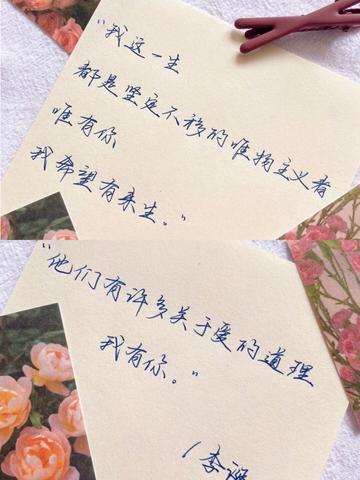 "我这一生
都是坚定不移的唯物主义者
唯有你
我希望有来生。"
"他们有许多关于爱的道理
我有你。"
(李诞